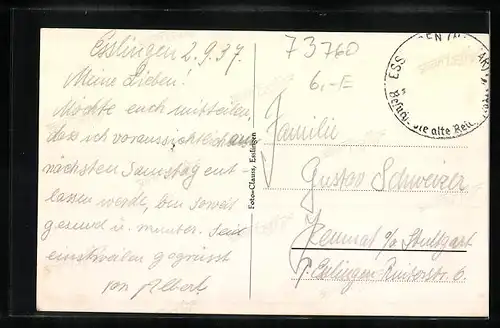 Esslingen 2.9.37.
Meine Lieben!
Möchte euch mitteilen,
dass ich voraussichtlich am
nächsten Samstag ent-
lassen werde, bin soweit
gesund u. munter. Seid
einstweilen gegrüsst
von Albert
Foto-Clauss, Esslingen
73760
6,-E
Familie
Gustav Schweizer
Heumat b/o Stuttgart
Esslingen
ESS
Besucht die alte Rei